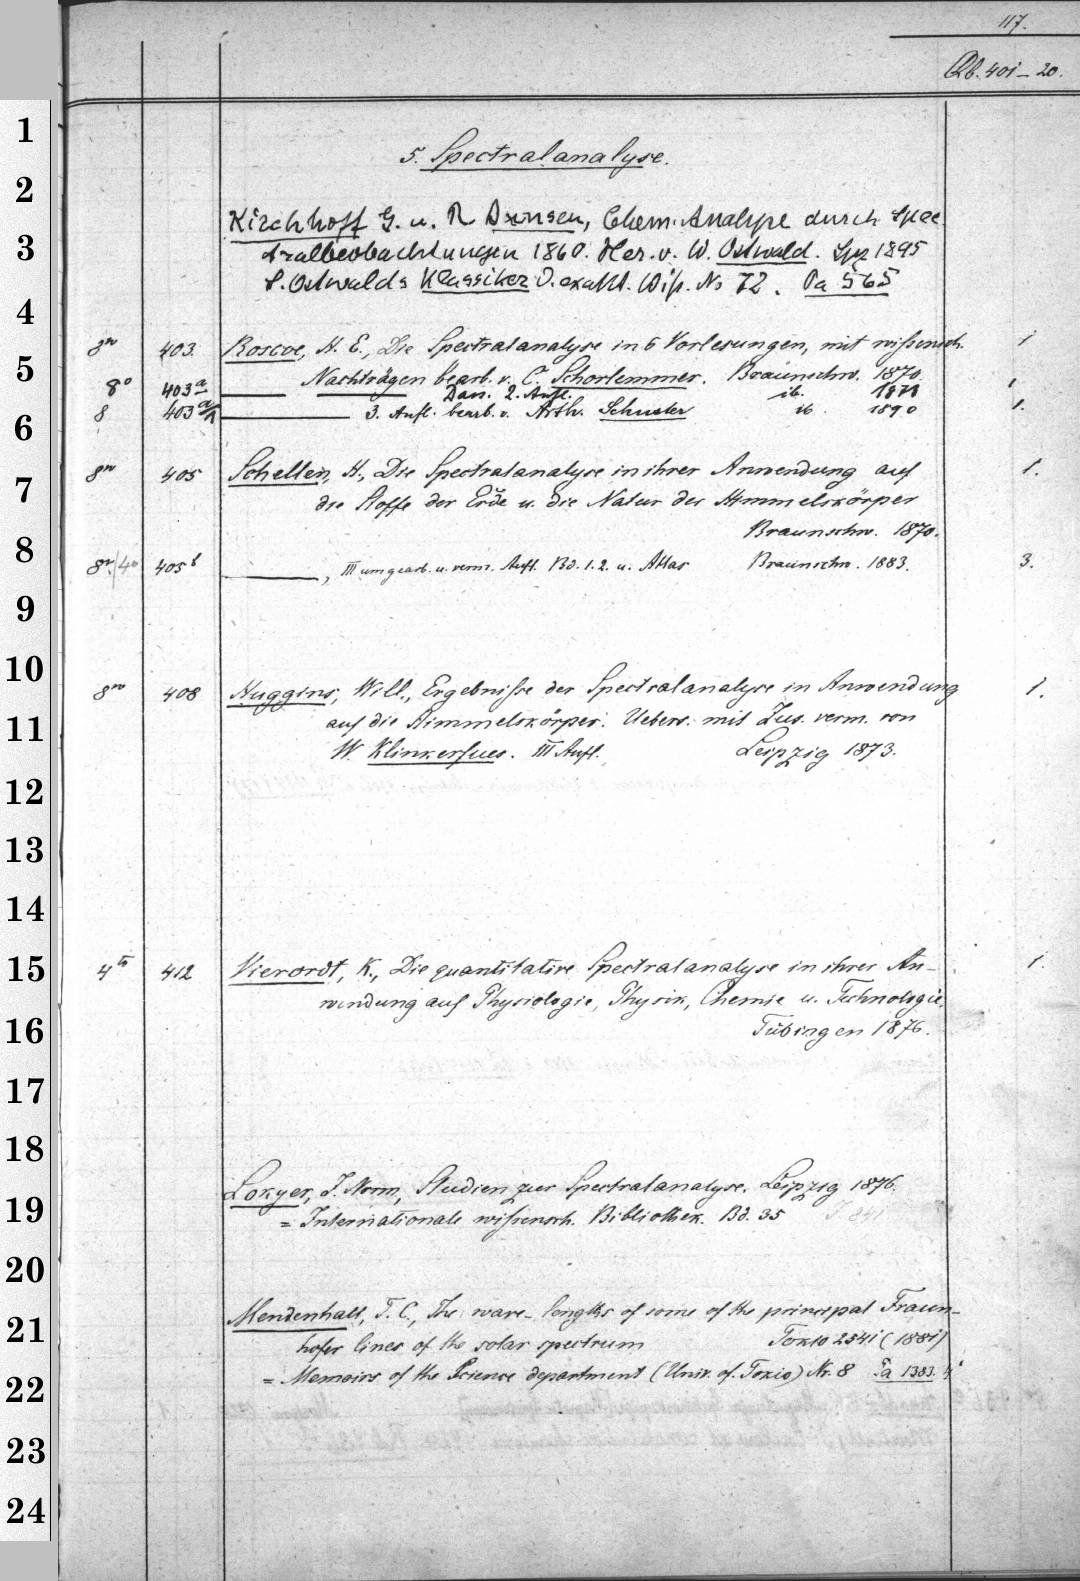 117.
Qb. 401-20.
1
5. Spectralanalyse.
2
Kirchhoff G. u. R Bunsen, Chem. Analyse durch Spec
3
tralbeobachtungen 1860. Her. v. W. Ostwald. Lpz 1895
S. Ostwalds Klassiker d. exakt. Wiß. No 72. Pa 565
4
8vo 403. Roscoe, H. E., Die Spectralanalyse in 6 Vorlesungen, mit wißensch. 1
5
Nachträgen bearb. v. C. Schorlemmer. Braunschw. 1870.
8o 403a ——— Dass. 2. Aufl. ib. 1.
8 403a/a ——— 3. Aufl. bearb. v. Arth. Schuster ib. 1890 1.
6
8vo 405 Schellen, H., Die Spectralanalyse in ihrer Anwendung auf 1.
7
die Stoffe der Erde u. die Natur der Himmelskörper
Braunschw. 1870.
8
8vo/4o 405b ———, III umgearb. u. verm. Aufl. Bd. 1. 2. u. Atlas Braunschw. 1883. 3.
9
10
8vo 408 Huggins, Will., Ergebniße der Spectralanalyse in Anwendung 1.
11
auf die Himmelskörper. Uebers. mit Zus. verm. von
W. Klinkerfues. III Aufl. Leipzig 1873.
12
13
14
15
4to 412 Vierordt, K., Die quantitative Spectralanalyse in ihrer An- 1.
wendung auf Physiologie, Physik, Chemie u. Technologie.
16
Tübingen 1876.
17
18
Lokyer, J. Norm, Studien zur Spectralanalyse. Leipzig 1876.
19
= Internationale wißensch. Bibliothek. Bd. 35 J 841
20
Mendenhall, T. C., The wave-lengths of some of the principal Fraun-
21
hofer lines of the solar spectrum Tokio 2541 (1881)
= Memoirs of the Science department (Univ. of Tokio) Nr. 8 Ta 1383. 4o
22
23
24